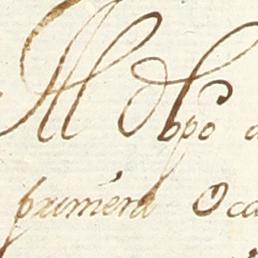 Ill Obpo
primera Oca